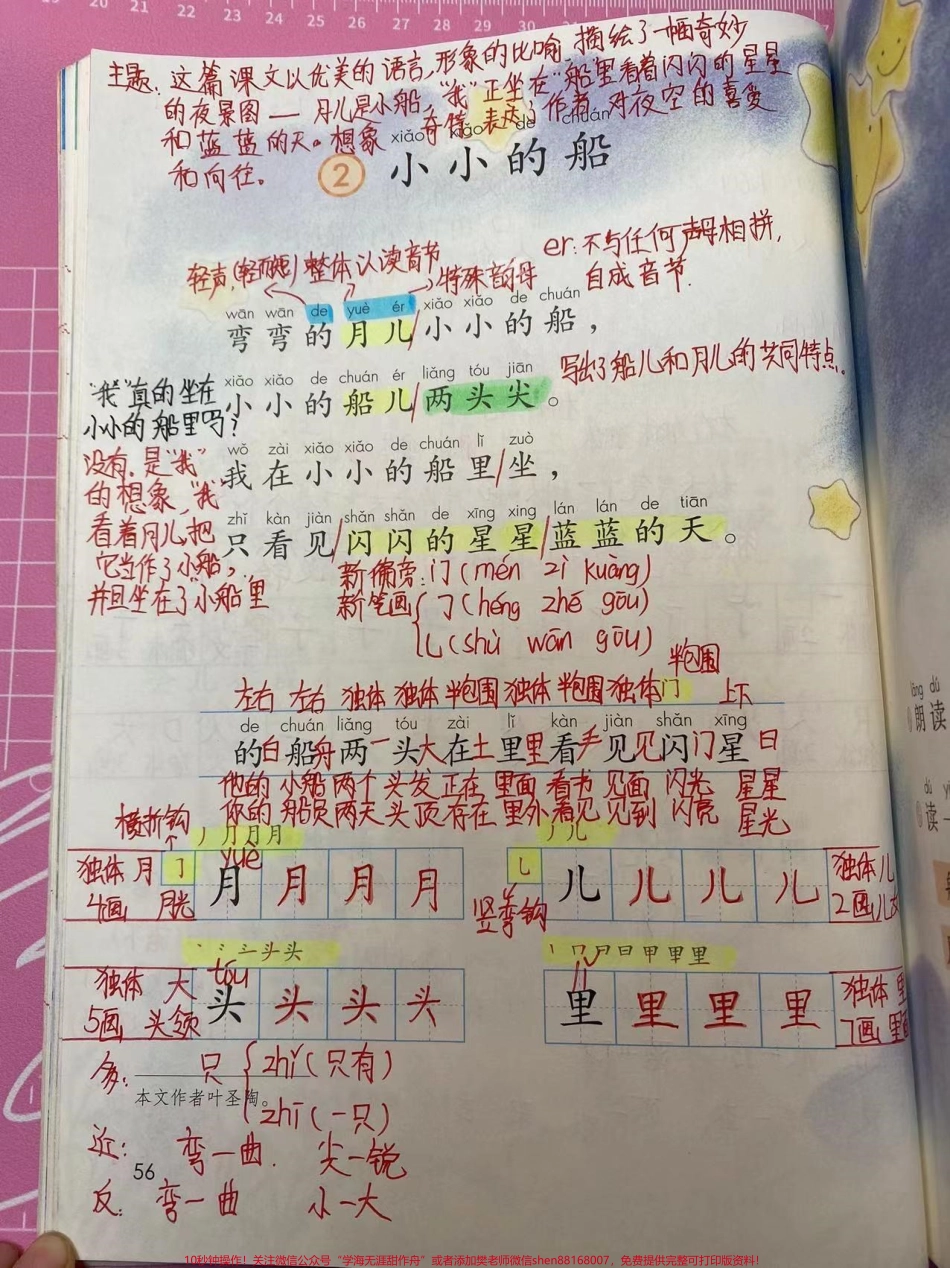 主题：这篇课文以优美的语言,形象的比喻 描绘了一幅奇妙
的夜景图— 月儿是小船,"我"正坐在"船"里看着闪闪的星星
和蓝蓝的天。想象奇特 表达了作者 对夜空的喜爱
和向往。
xiǎo xiǎo de chuán
② 小小的船
er:不与任何声母相拼,
自成音节.
轻声,(轻而短) 整体认读音节
特殊韵母
wān wān de yuè ér xiǎo xiǎo de chuán
弯弯的月儿/小小的船，
写出了船儿和月儿的共同特点.
xiǎo xiǎo de chuán ér liǎng tóu jiān
小小的船儿/两头尖。
"我"真的坐在
小小的船里吗?
wǒ zài xiǎo xiǎo de chuán lǐ zuò
我在小小的船里/坐，
没有.是"我"
的想象,"我"
看着月儿把
它当作了小船,
并且坐在了"小船"里
zhǐ kàn jiàn shǎn shǎn de xīng xing lán lán de tiān
只看见/闪闪的星星/蓝蓝的天。
新偏旁:门(mén zì kuàng)
新笔画{㇆(héng zhé gōu)
乚(shù wān gōu)
半包围
左右 左右 独体 独体 半包围 独体 半包围 独体 门 上下
de chuán liǎng tóu zài lǐ kàn jiàn shǎn xīng
的白船舟两一头大在土里里看手见见闪门星日
他的 小船 两个 头发 正在 里面 看书 见面 闪光 星星
你的 船员 两天 头顶 存在 里外 看见 见到 闪亮 星光
横折钩
丿 ⺆ 月 月
丿 儿
yuè
独体 月 ㇆ 月 月 月 月
4画 月光
乚 儿 儿 儿 儿 独体 儿
2画 儿女
竖弯钩
丶 ⺀ 三 头 头
丨 冂 日 曰 甲 甲 里 里
tóu
lǐ
独体 大 头 头 头 头
5画 头领
里 里 里 里 独体 里
7画 里面
多: 只 {zhǐ(只有)
本文作者叶圣陶。
zhī(一只)
近: 弯—曲. 尖—锐
56
反: 弯—曲 小—大
10秒钟操作！关注微信公众号“学海无涯甜作舟”或者添加樊老师微信shen88168007，免费提供完整可打印版资料！
lǎng dú
朗读
dú
读一